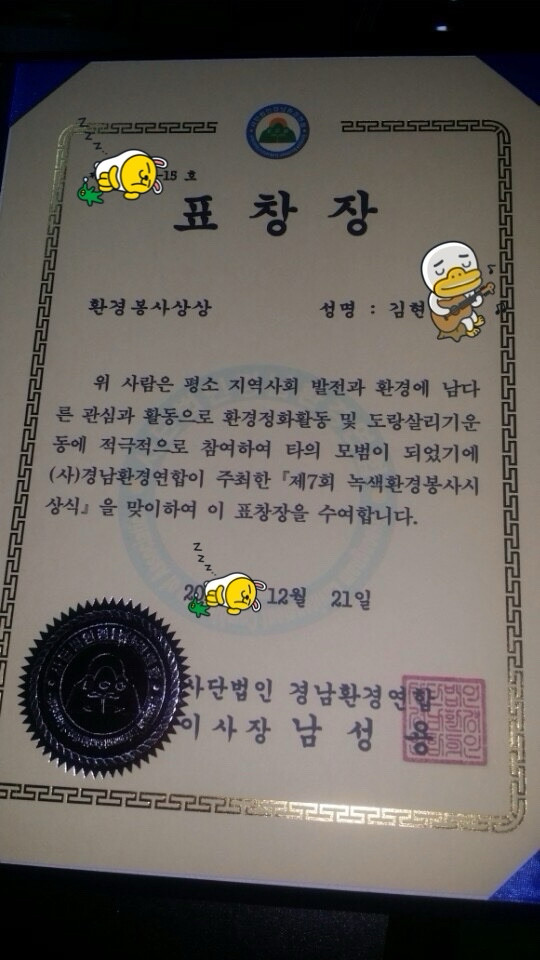 -15 호
표 창 장
환경봉사상상 성명 : 김현
위 사람은 평소 지역사회 발전과 환경에 남다
른 관심과 활동으로 환경정화활동 및 도랑살리기운
동에 적극적으로 참여하여 타의 모범이 되었기에
(사)경남환경연합이 주최한 『제7회 녹색환경봉사시
상식』을 맞이하여 이 표창장을 수여합니다.
20 12월 21일
사단법인 경남환경연합
이 사 장 남 성 용